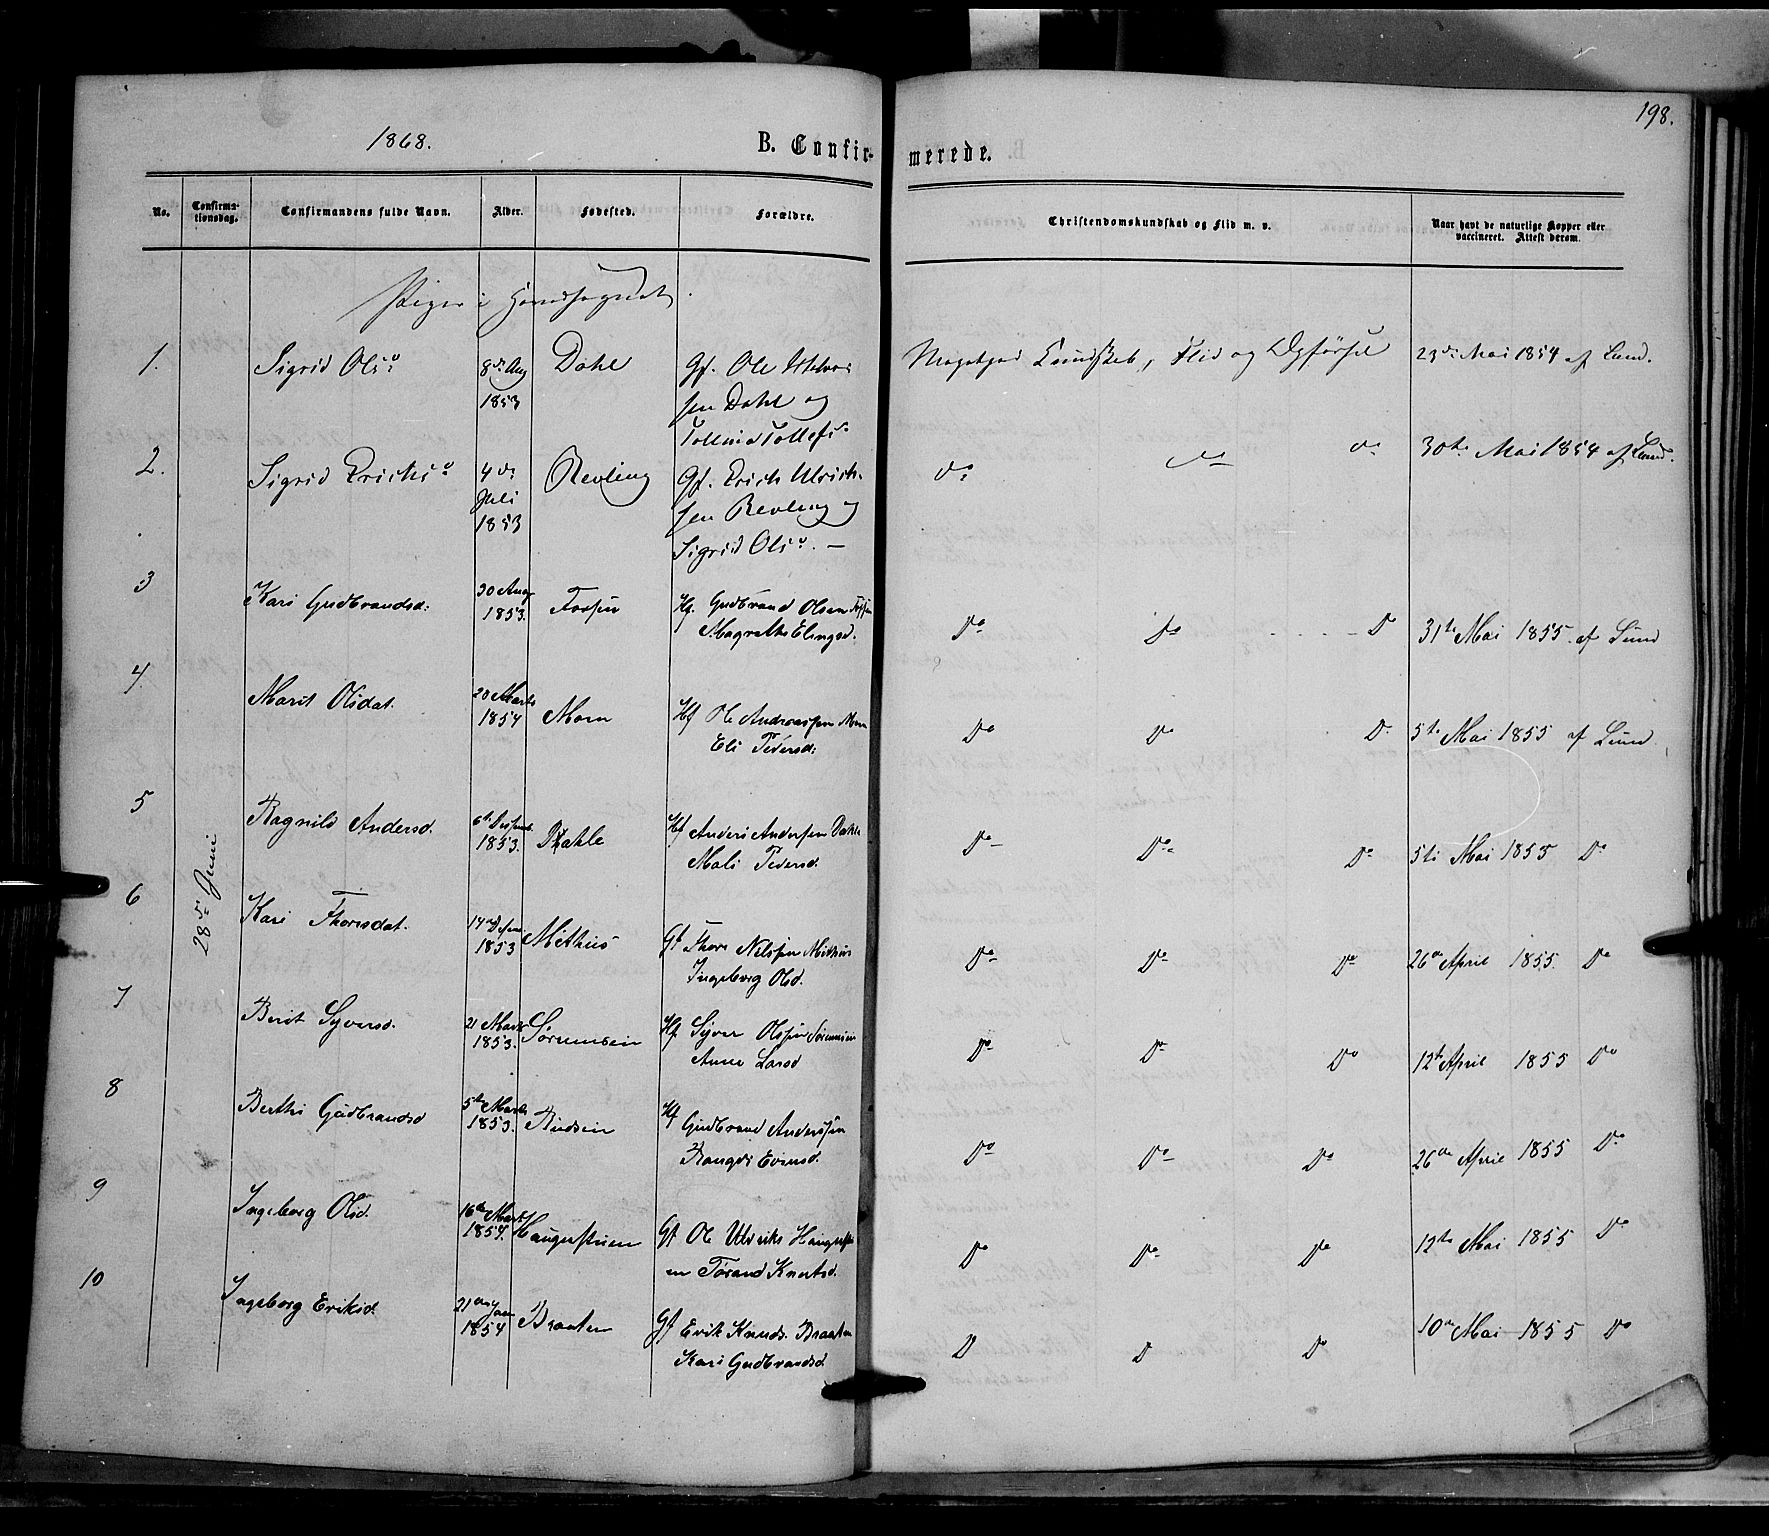 198.
1868. B. Confirmerede.
No. Confirmationsdag. Confirmandens fulde Navn. Alder. Fødested. Forældre. Christendomskundskab og Flid m. v. Naar havt de naturlige Kopper eller vaccineret. Attest derom.
Piger i Hovedsognet.
1. Sigrid Olsd 8de Aug Dahl Gf. Ole Meget god Kundskab, Flid og Opførsel 23de Mai 1854 af Lund.
1853 sen Dahl og
Tollefsd
2. Sigrid Erichsd 4de Revling Gf. Erich Ulrich- Do Do Do 30te Mai 1854 af Lund.
Juli sen Revling og
1853 Sigrid Olsd. —
3 Kari Gudbrandsd: 30 Aug Fossen Hf. Gudbrand Olsen Fossen Do Do Do 31te Mai 1855 af Lund
1853. Magrethe Elingsd.
4. Marit Olsdat. 20 Marts Moen Hf Ole Andreassen Moen Do Do Do 5te Mai 1855 af Lund
1854 Eli Pedersd:
28de Juni
5 Ragnild Andersd. 6te Desemb. Dahle Hf Anders Andersen Dahle Do Do Do 5te Mai 1855 Do
1853. Mali Pedersd.
6 Kari Thorsdat. 14de Desem. Methus Gf Thore Nilssen Methus Do Do Do 26de April 1855. Do
1853 Ingeborg Olsd.
7 Berit Syversd. 21 Marts Sørumseie Hf. Syver Olssen Sørumseie Do Do Do 12te April 1855 Do
1853. Anne Larsd
8 Berthe Gudbrandsd 5te Marts Rudseie Hf Gudbrand Anderssen Do Do Do 26de April 1855 Do
1853. Rangdi Evensd.
9 Ingeborg Olsd. 16de Marts Haugerstuen Gf Ole Ulriks Haugerstu- Do Do Do 12te Mai 1855 Do
1854. en Torand Knutsd.
10 Ingeborg Eriksd. 21de Jan Braaten Gf Erik Knuds. Braaten Do Do Do 10de Mai 1855 Do
1854 Kari Gudbrandsd.